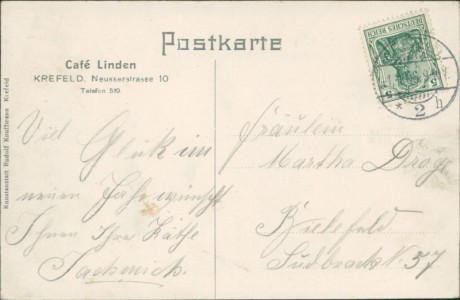 Postkarte
Café Linden
KREFELD, Neusserstrasse 10
Telefon 519.
Kunstanstalt Rudolf Kaufmann Krefeld
DEUTSCHES REICH
* 2 h
Viel Glück im
neuen Jahr wünscht
Ihnen Ihre Käthe
Fräulein
Martha Dröge
Bielefeld
Südbrack N. 57